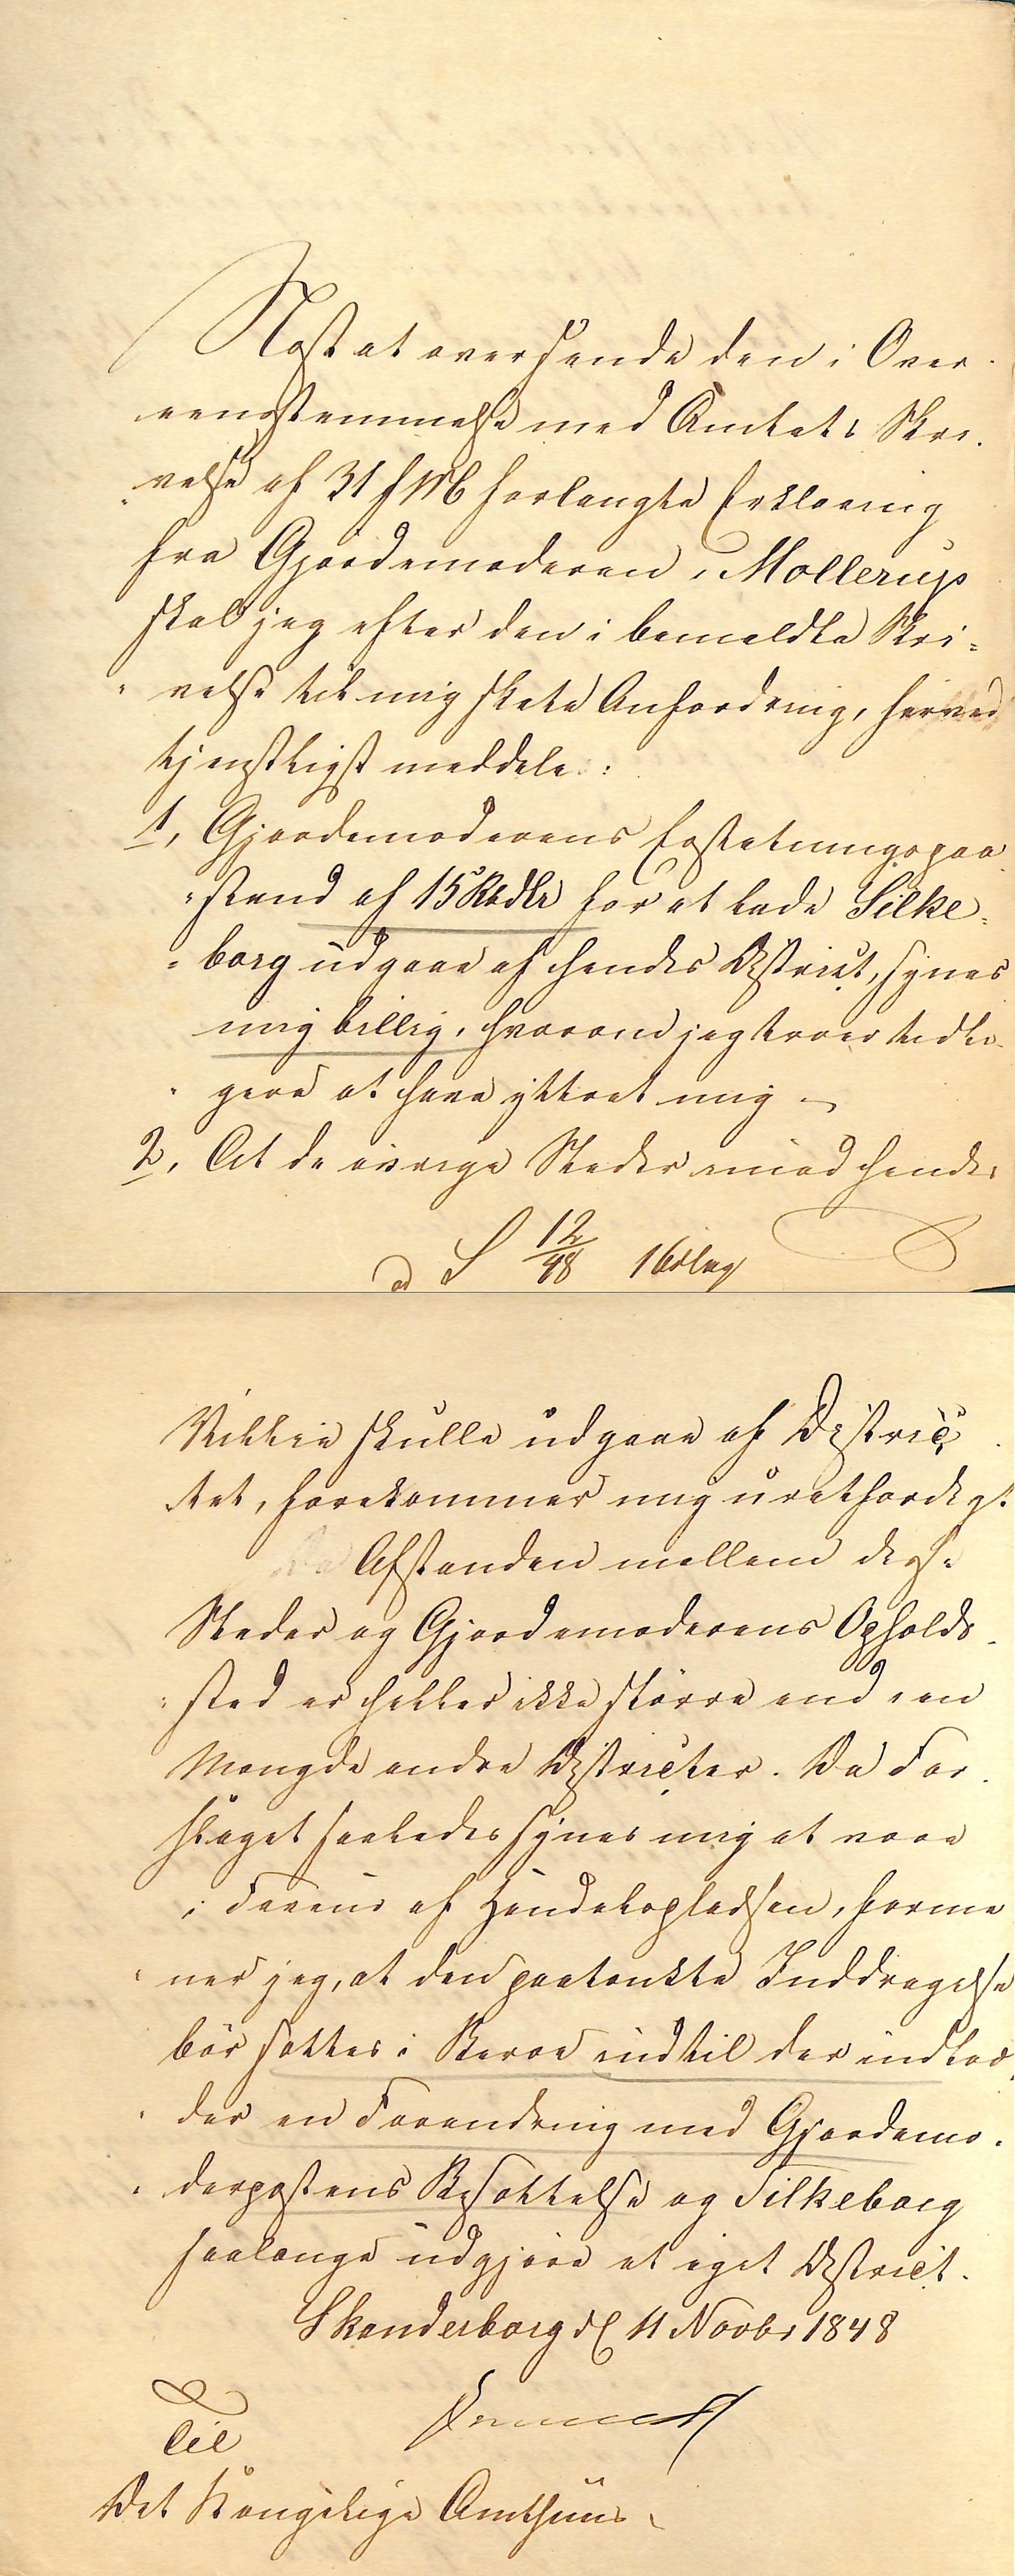 Næst at oversende den i Over
eensstemmelse med Amtets Skri-
velse af 31 f M forlangte Erklæring
fra Gjordemoderen, Møllerup
skal jeg efter den i bemeldte Skri=
velse til mig skete Anfordring, herved
tjenstligst meddele:
1, Gjordemoderens Erstatningspaa
stand af 15 Rbdlr for at lade Silke=
borg udgaae af hendes District, synes
mig billig, hvorom jeg troer tidli-
gere at have yttret mig –
2, At de øvrige Steder imod hendes
S 12/48 1 Bilag
Villie skulle udgaae af Distric
tet, forekommer mig uretfærdigt
Da Afstanden mellem disse
Steder og Gjordemoderens Opholds
sted er heller ikke større end i en
Mængde andre Districter. Da For
slaget saaledes synes mig at være
i Faveur af Handelspladsen, forme
ner jeg, at den paatænkte Inddragelse
bør sættes i Bero indtil der indtræ
der en Forandring med Gjordemo-
derpostens Besættelse og Silkeborg
saalænge udgjøre et eget District.
Skanderborg d 11 Novbr 1848
Til
Det Kongelige Amthuus